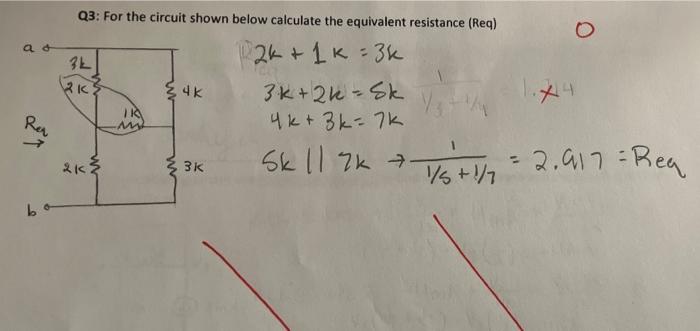 Q3: For the circuit shown below calculate the equivalent resistance (Req)
O
a
3k
2k
4k
1k
Req
2k
3k
b
2k + 1k = 3k
3k + 2k = 5k
4k + 3k = 7k
1
1/3 + 1/4
5k || 7k → 1 / 1/5 + 1/7 = 2.917 = Req